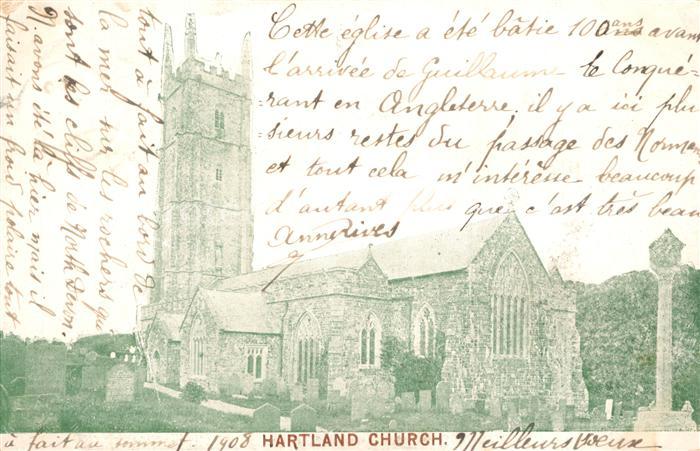 Cette église a été bâtie 100 ans avant
l'arrivée de Guillaume le Conqué-
-rant en Angleterre, il y a ici plu-
-sieurs restes du passage des Normans
et tout cela m'intéresse beaucoup
d'autant plus que c'est très beau
tout à fait au bord de
la mer sur les rochers qui
sont les cliffs de North Devon.
N. avons été là hier mais il
faisait un froid polaire tout
à fait au sommet. 1908
HARTLAND CHURCH.
Meilleurs vœux